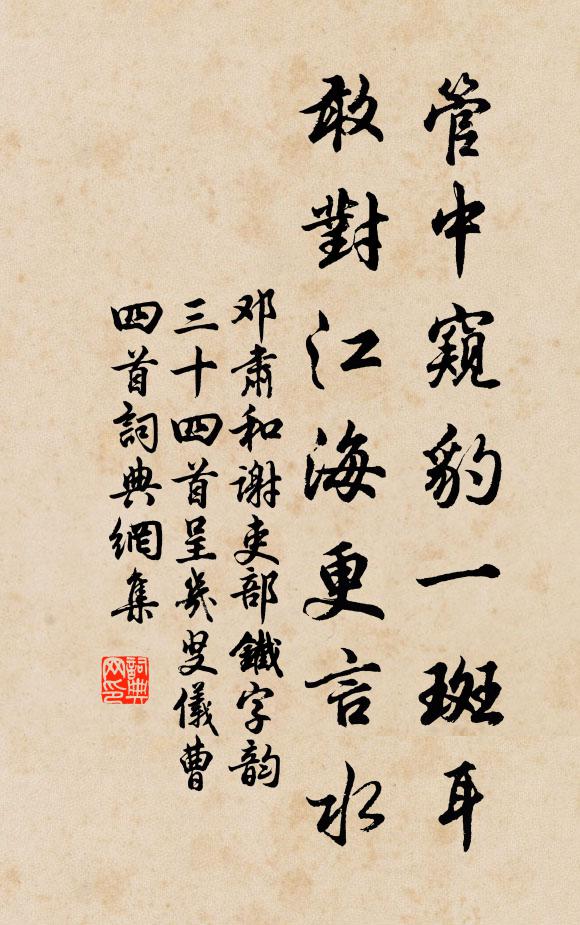 管中窺豹一斑耳
敢對江海更言水
邓肅和謝吏部鐵字韵
三十四首呈幾叟儀曹
四首詞典網集
詞典网印